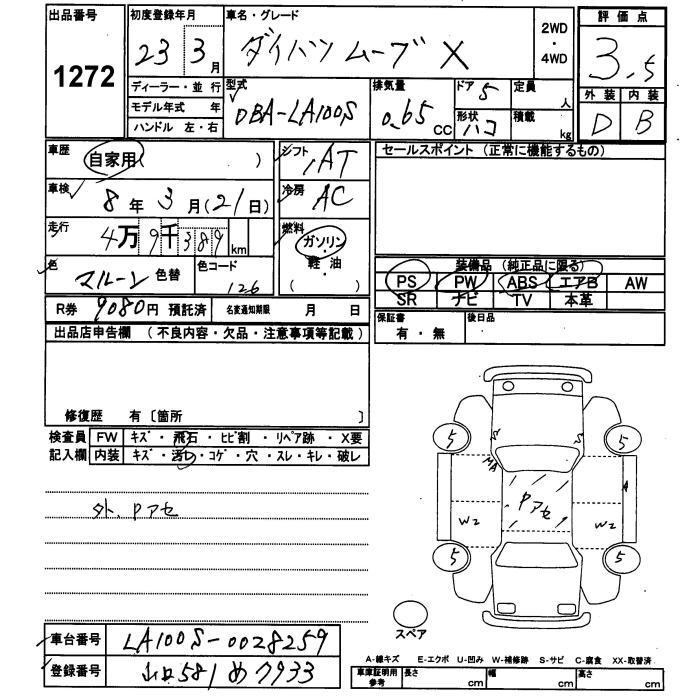 出品番号 初度登録年月 車名・グレード 2WD・4WD 評価点
1272 23 3月 ダイハツ ムーブ X 3.5
ディーラー・並行 型式 排気量 ドア 5 定員 人 外装 内装
モデル年式 年 DBA-LA100S 0.65 CC 形状 ハコ 積載 kg D B
ハンドル 左・右
車歴 自家用( ) シフト AT セールスポイント (正常に機能するもの)
車検 8年 3月(21日) 冷房 AC
走行 4万9千389 km 燃料 ガソリン・軽・油 ( )
色 マルーン 色替 色コード 126 装備品 (純正品に限る)
PS PW ABS エアB AW
SR ナビ TV 本革
R券 9080円 預託済 名変通知期限 月 日 保証書 有・無 後日品
出品店申告欄 (不良内容・欠品・注意事項等記載)
修復歴 有〔箇所 〕
検査員 FW キズ・飛石・ヒビ割・リペア跡・X要
記入欄 内装 キズ・汚レ・コゲ・穴・スレ・キレ・破レ
外、Pアセ
5 S S 5
MA A
Pアセ
W2 W2
5 5
スペア
車台番号 LA100S-0028259
登録番号 山口581め7933
A-線キズ E-エクボ U-凹み W-補修跡 S-サビ C-腐食 XX-取替済
車庫証明用参考 長さ cm 幅 cm 高さ cm